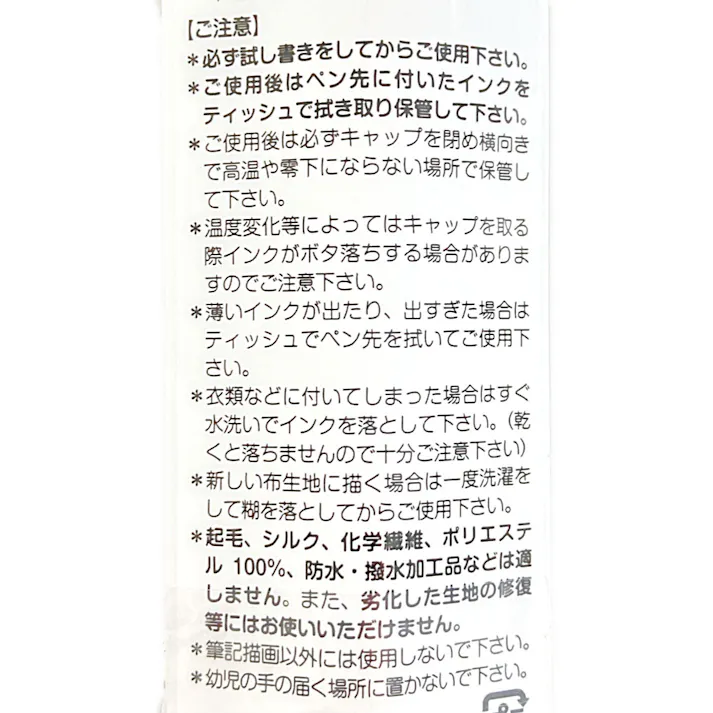 【ご注意】
＊必ず試し書きをしてからご使用下さい。
＊ご使用後はペン先に付いたインクを
ティッシュで拭き取り保管して下さい。
＊ご使用後は必ずキャップを閉め横向き
で高温や零下にならない場所で保管し
て下さい。
＊温度変化等によってはキャップを取る
際インクがボタ落ちする場合がありま
すのでご注意下さい。
＊薄いインクが出たり、出すぎた場合は
ティッシュでペン先を拭いてご使用下
さい。
＊衣類などに付いてしまった場合はすぐ
水洗いでインクを落として下さい。（乾
くと落ちませんので十分ご注意下さい）
＊新しい布生地に描く場合は一度洗濯を
して糊を落としてからご使用下さい。
＊起毛、シルク、化学繊維、ポリエステ
ル 100%、防水・撥水加工品などは適
しません。また、劣化した生地の修復
等にはお使いいただけません。
＊筆記描画以外には使用しないで下さい。
＊幼児の手の届く場所に置かないで下さい。